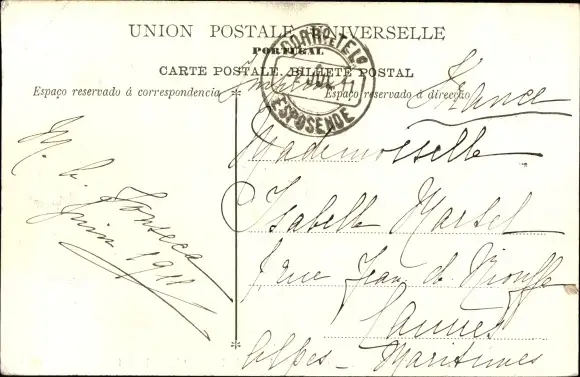 UNION POSTALE UNIVERSELLE
PORTUGAL
CARTE POSTALE. BILHETE POSTAL
Espaço reservado á correspondencia
Espaço reservado á direcção
ESPOSENDE
France
Mademoiselle
Isabelle Martel
rue Jean de Riouffe
Cannes
Alpes - Maritimes
Fonseca
Juin 1911